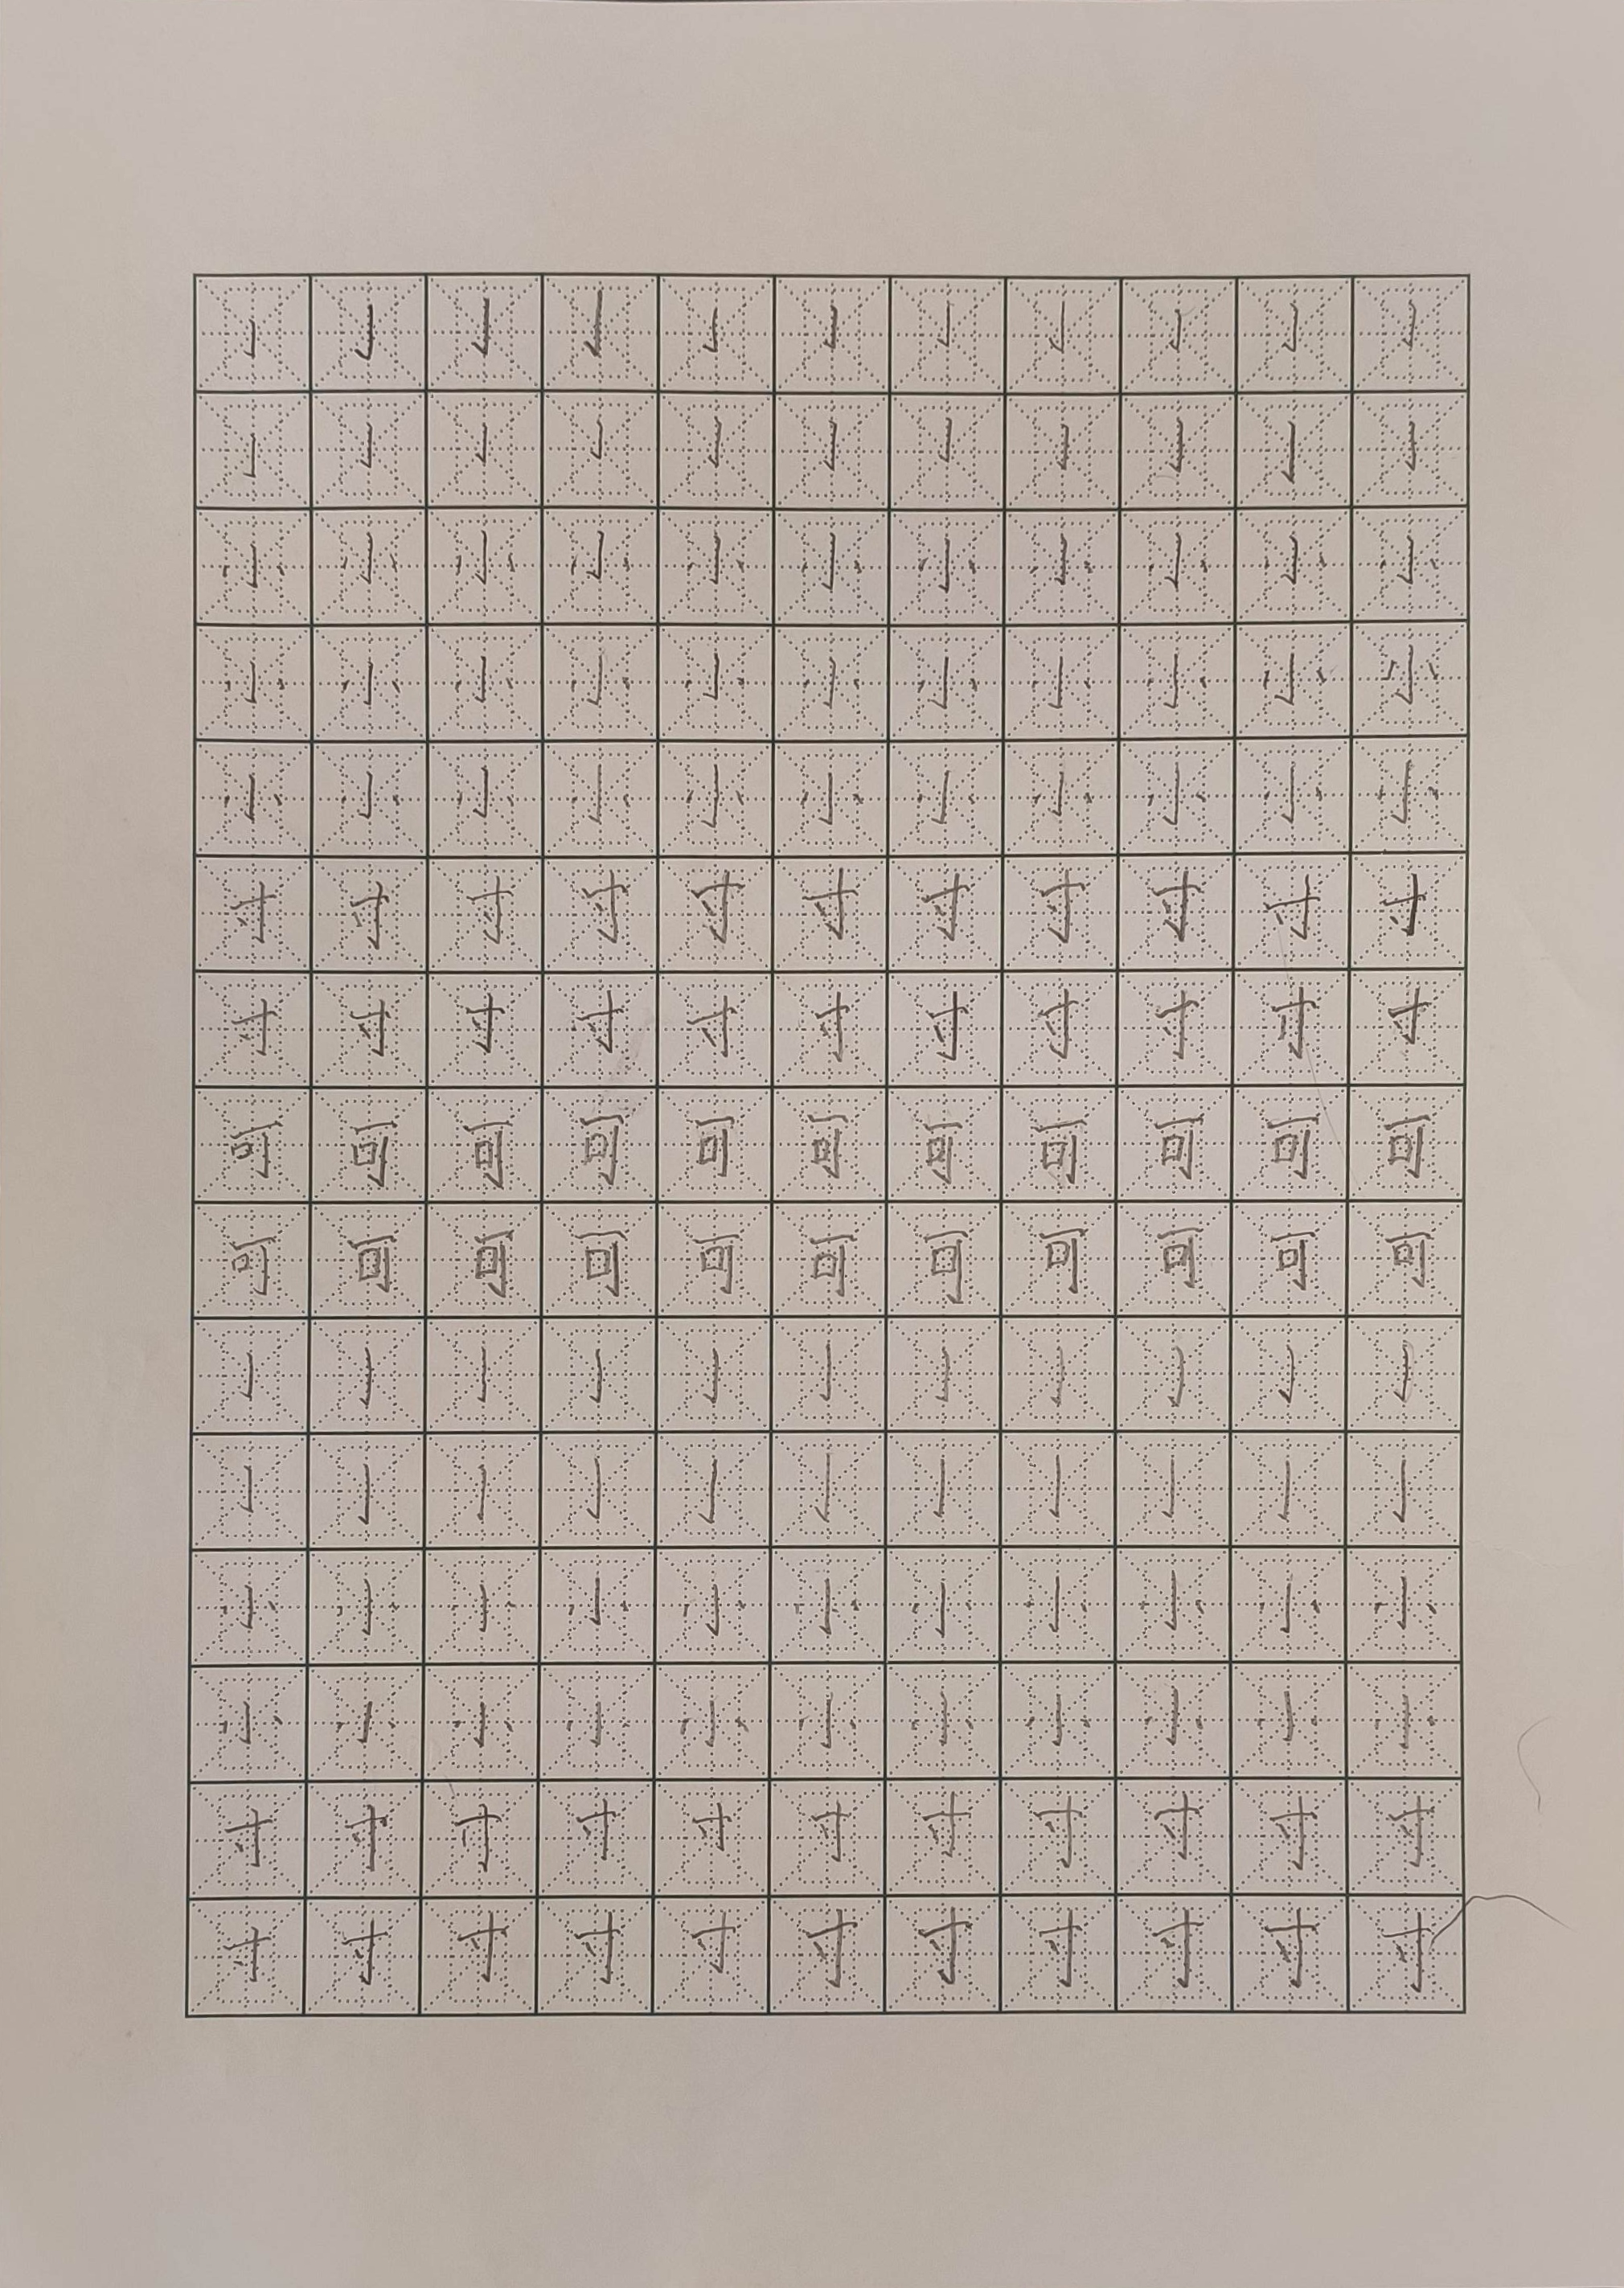 亅亅亅亅亅亅亅亅亅亅亅
亅亅亅亅亅亅亅亅亅亅亅
小小小小小小小小小小小
小小小小小小小小小小小
小小小小小小小小小小小
寸寸寸寸寸寸寸寸寸寸寸
寸寸寸寸寸寸寸寸寸寸寸
可可可可可可可可可可可
可可可可可可可可可可可
亅亅亅亅亅亅亅亅亅亅亅
亅亅亅亅亅亅亅亅亅亅亅
小小小小小小小小小小小
小小小小小小小小小小小
寸寸寸寸寸寸寸寸寸寸寸
寸寸寸寸寸寸寸寸寸寸寸